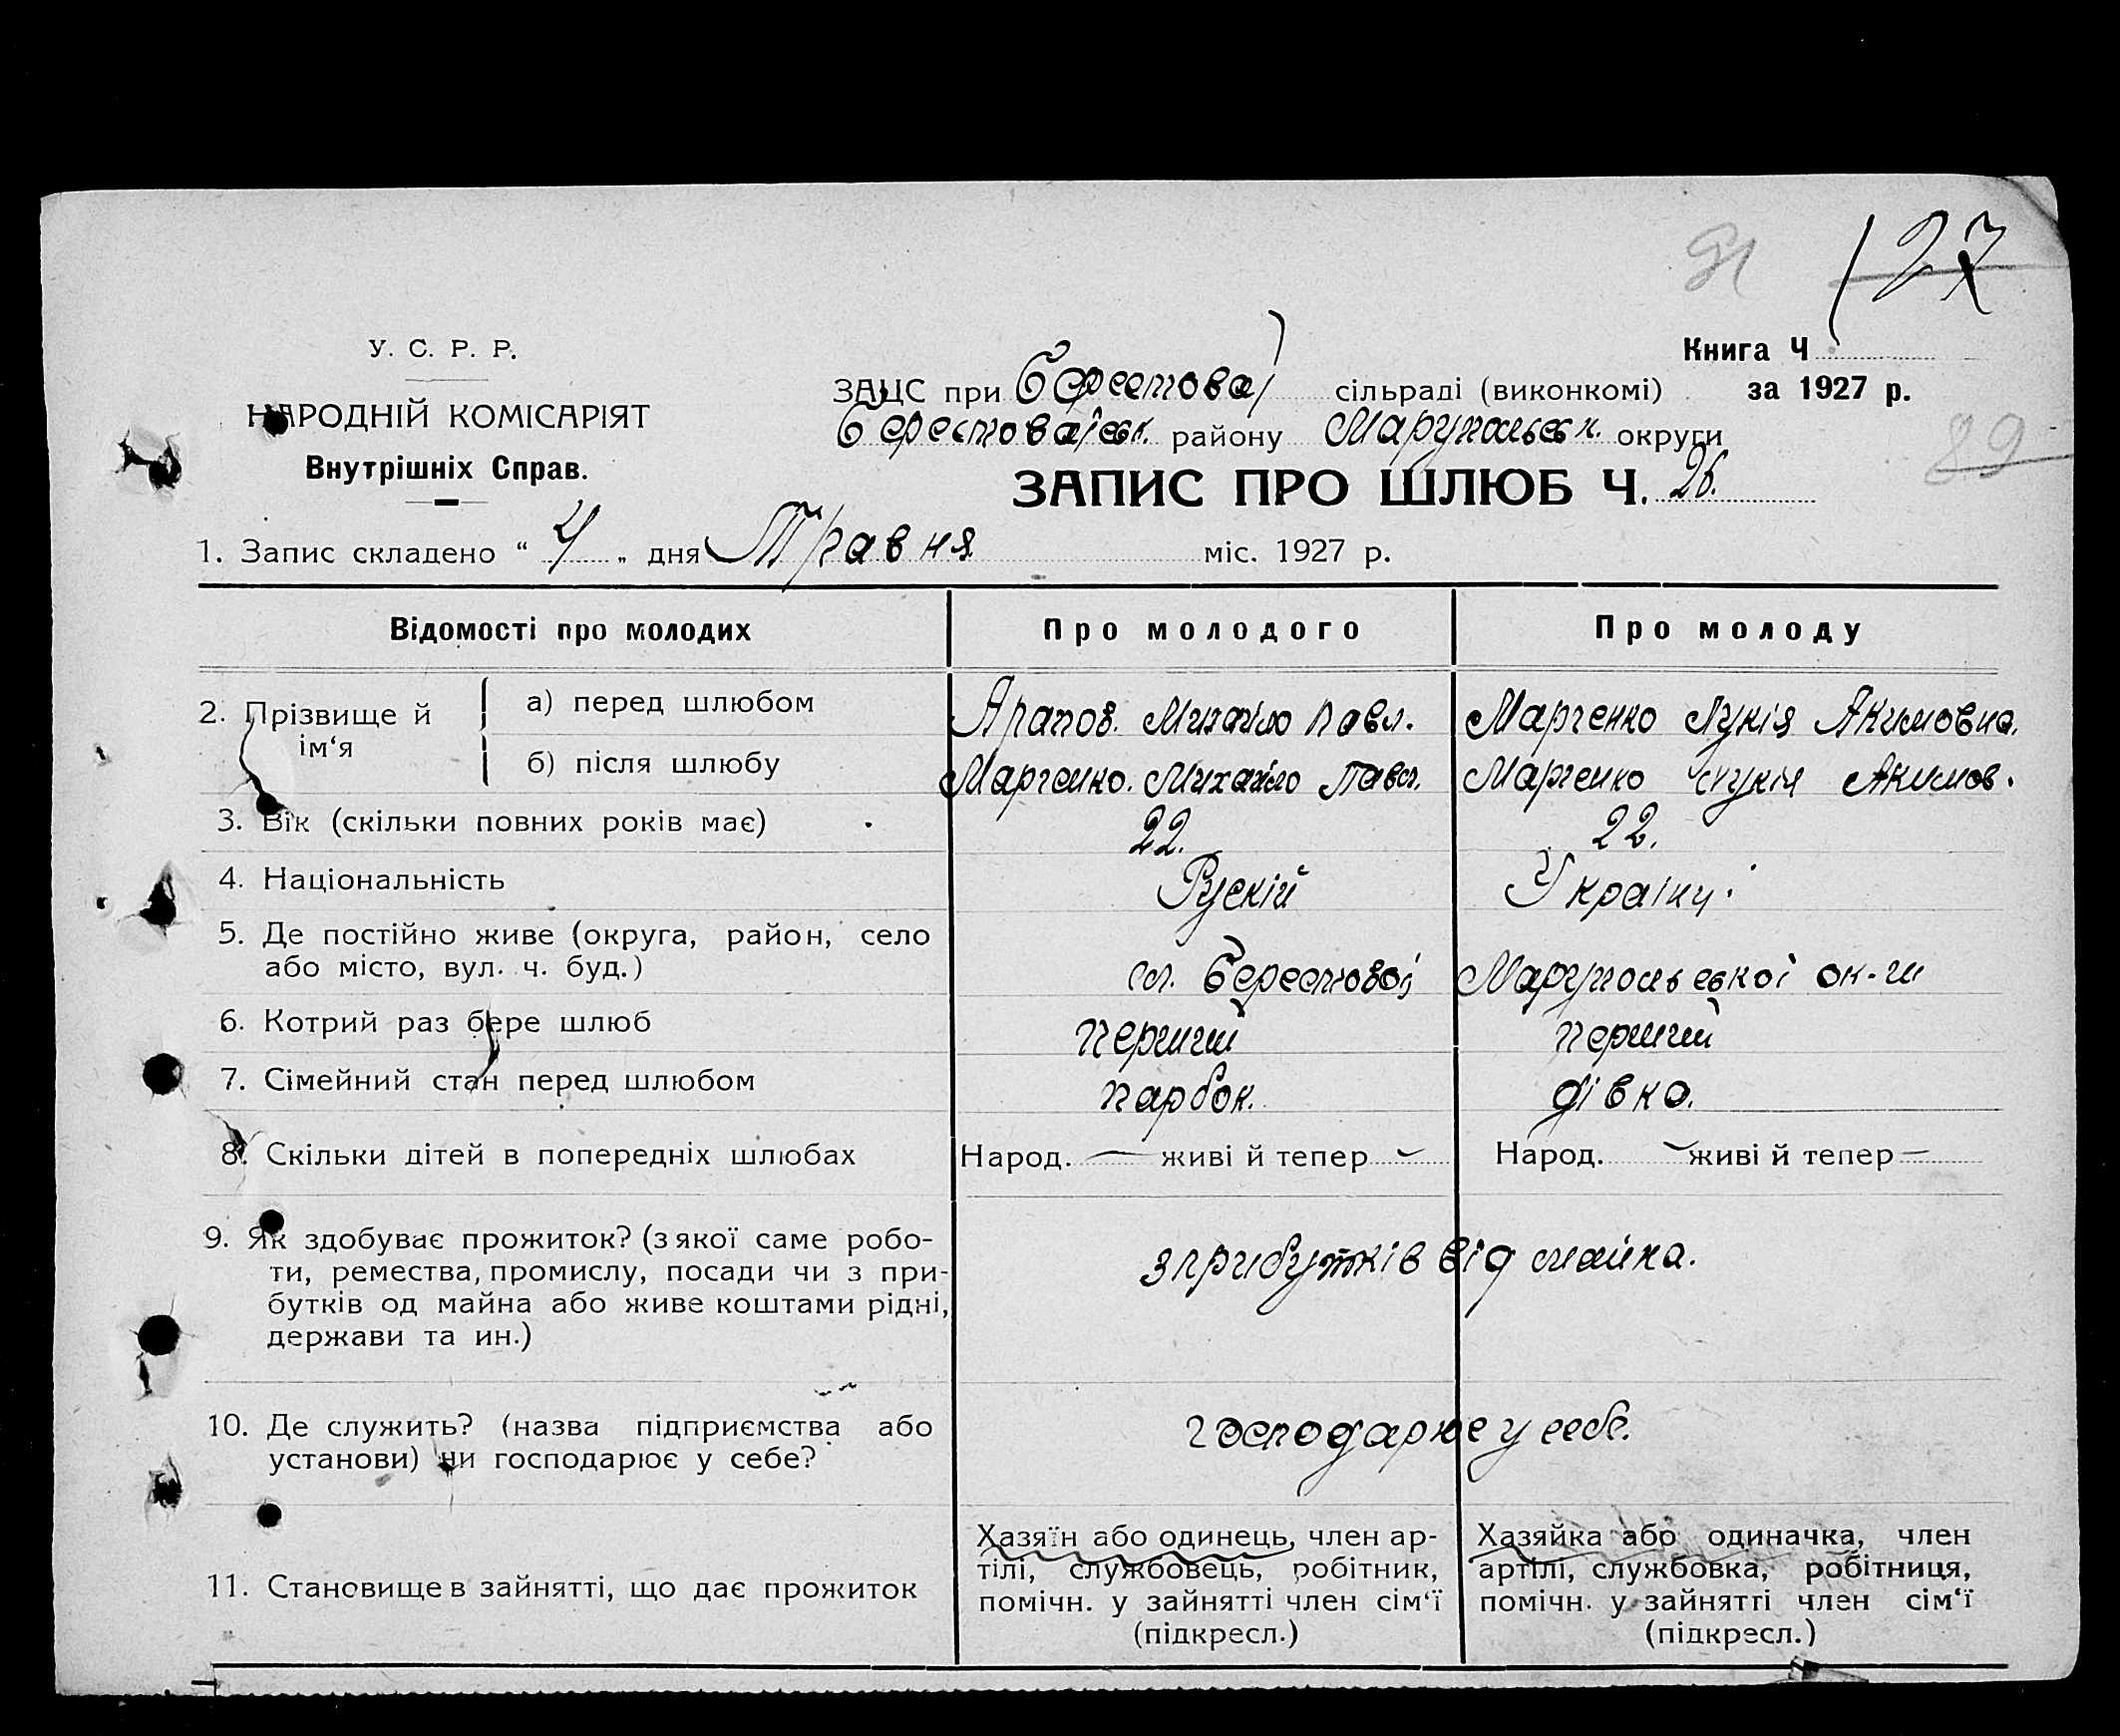 91 127
У. С. Р. Р.
Книга Ч
ЗАЦС при Берестовај сільраді (виконкомі) за 1927 р.
НАРОДНІЙ КОМІСАРІЯТ
Берестоваівськ. району Марупольськ. округи
89
Внутрішніх Справ.
ЗАПИС ПРО ШЛЮБ Ч. 26.
1. Запис складено “ 4 „ дня Травня міс. 1927 р.
Відомості про молодих Про молодого Про молоду
2. Прізвище й ім‘я
а) перед шлюбом Арапов. Михайло Павл. Марченко Лукія Акимовна.
б) після шлюбу Марченко. Михайло Павл. Марченко Лукія Акимов.
3. Вік (скільки повних років має) 22. 22.
4. Національність Рускій Українц.
5. Де постійно живе (округа, район, село
або місто, вул. ч. буд.) Берестовој Марупольської ок-ги
6. Котрий раз бере шлюб перший перший
7. Сімейний стан перед шлюбом парбок. дівка.
8. Скільки дітей в попередніх шлюбах Народ. — живі й тепер — Народ. — живі й тепер —
9. Як здобуває прожиток? (з якої саме робо-
ти, ремества, промислу, посади чи з при-
бутків од майна або живе коштами рідні,
держави та ин.)
з прибутків від майна.
10. Де служить? (назва підприємства або
установи) чи господарює у себе?
господарює у себе.
11. Становище в зайнятті, що дає прожиток
Хазяїн або одинець, член ар-
тілі, службовець, робітник,
помічн. у зайнятті член сім‘ї
(підкресл.)
Хазяйка або одиначка, член
артілі, службовка, робітниця,
помічн. у зайнятті член сім‘ї
(підкресл.)